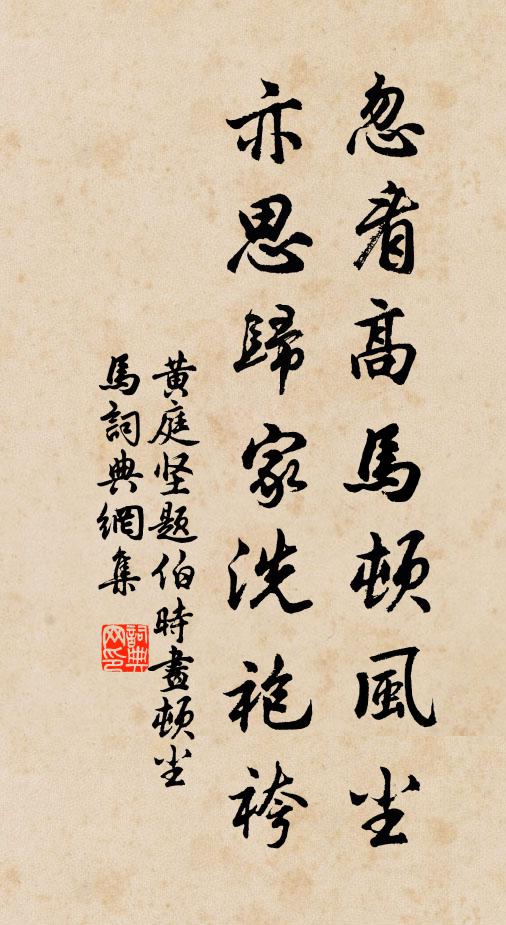 忽看高馬頓風尘
亦思歸家洗袍袴
黄庭坚题伯時畫頓尘
馬詞典網集
詞典网印